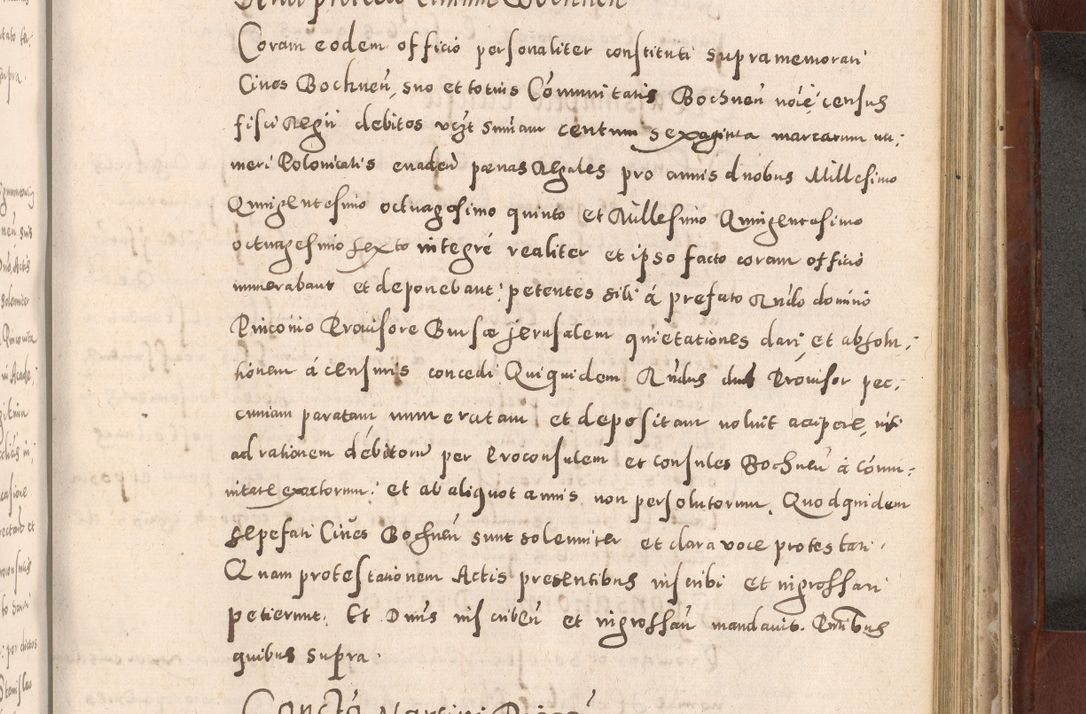 Coram eodem officio personaliter constituti supramemorati
Cives Bochneñ, suo et totius Com̃unitatis Bochneñ noĩe, census
fisci Regii debitos vczt sum̃am centum sexaginta marcarum nu:
meri Polonicalis evadeñ pænas Regales pro annis duobus Millesimo
Quingentesimo octuagesimo quinto et Millesimo Quingentesimo
octuagesimo sexto integré realiter et ipso facto coram officio
numerabant et deponebant: petentes sibi á prefato Rñdo domino
Pinconio Provisore Bursæ Jerusalem quietationes dari, et absolu:
tionem á censuris concedi. Quiquidem Rñdus Provisor pec:
cuniam paratam numeratam et depositam noluit accipere, nisi
ad rationem debitorum per Proconsulem et consules Bochneñ á com̃u:
nitate exactorum: et ab aliquot annis non persolutorum. Quodquidem
sepefati Cives Bochneñ sunt solemniter et clara voce protestati.
Quam protestationem Actis presentibus inscribi et ingrossari
petierunt. Et Dnus inscribeñ et ingrossañ mandavit. Pñtibus
quibus supra.